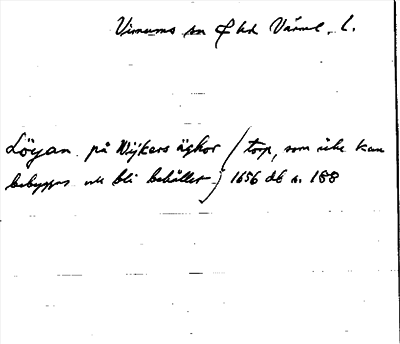 Visnums sn Ölme hd Värml. l.
Löyan på Wijkers ägkor (torp, som icke kan
bebyggas och bli behållet) 1656 db n. 188